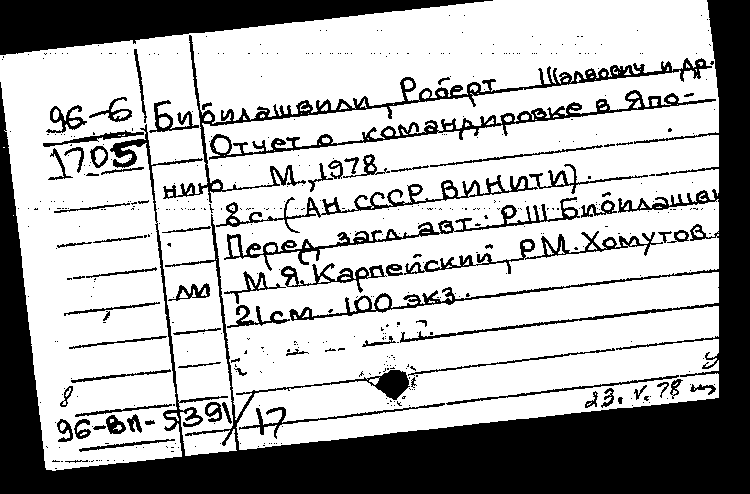 96-6 Бибилашвили, Роберт Шалвович и др.
1705 Отчет о командировке в Япо-
нию. М., 1978.
8 с. (АН СССР. ВИНИТИ).
Перед загл. авт.: Р.Ш Бибилашви
ли, М.Я. Карпейский, Р.М. Хомутов
21 см. 100 экз.
8
96-вп-5391/17
23.V.78